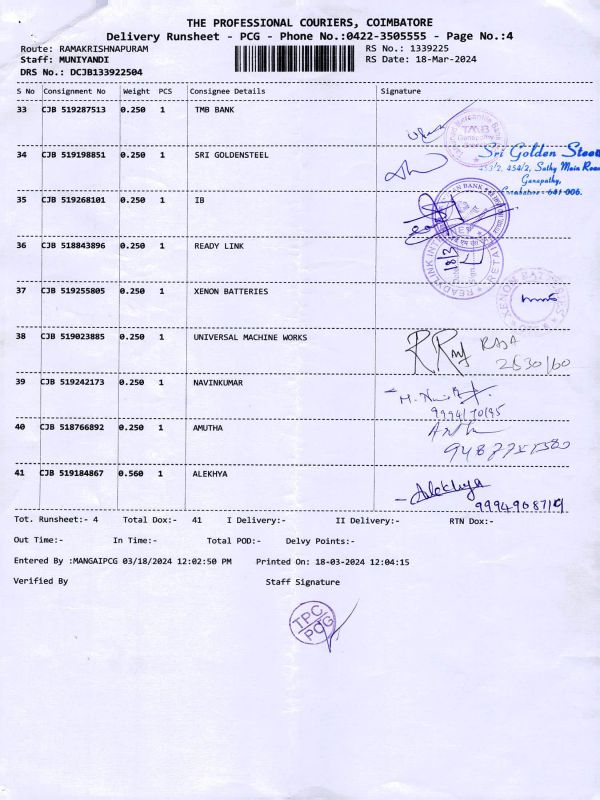 THE PROFESSIONAL COURIERS, COIMBATORE
Delivery Runsheet - PCG - Phone No.:0422-3505555 - Page No.:4
Route: RAMAKRISHNAPURAM RS No.: 1339225
Staff: MUNIYANDI RS Date: 18-Mar-2024
DRS No.: DCJB133922504
S No Consignment No Weight PCS Consignee Details Signature
33 CJB 519287513 0.250 1 TMB BANK
TMB
Ganapathy
34 CJB 519198851 0.250 1 SRI GOLDENSTEEL
Sri Golden Steel
453/2, 454/2, Sathy Main Road
Ganapathy,
Coimbatore - 641 006.
35 CJB 519268101 0.250 1 IB
BANK
36 CJB 518843896 0.250 1 READY LINK
READYLINK INTE RETAIL
18/3
37 CJB 519255805 0.250 1 XENON BATTERIES
XENON BATTERIES
38 CJB 519023885 0.250 1 UNIVERSAL MACHINE WORKS
RAJA
39 CJB 519242173 0.250 1 NAVINKUMAR
40 CJB 518766892 0.250 1 AMUTHA
41 CJB 519184867 0.560 1 ALEKHYA
Alekhya
Tot. Runsheet:- 4 Total Dox:- 41 I Delivery:- II Delivery:- RTN Dox:-
Out Time:- In Time:- Total POD:- Delvy Points:-
Entered By :MANGAIPCG 03/18/2024 12:02:50 PM Printed On: 18-03-2024 12:04:15
Verified By Staff Signature
TPC
PCG